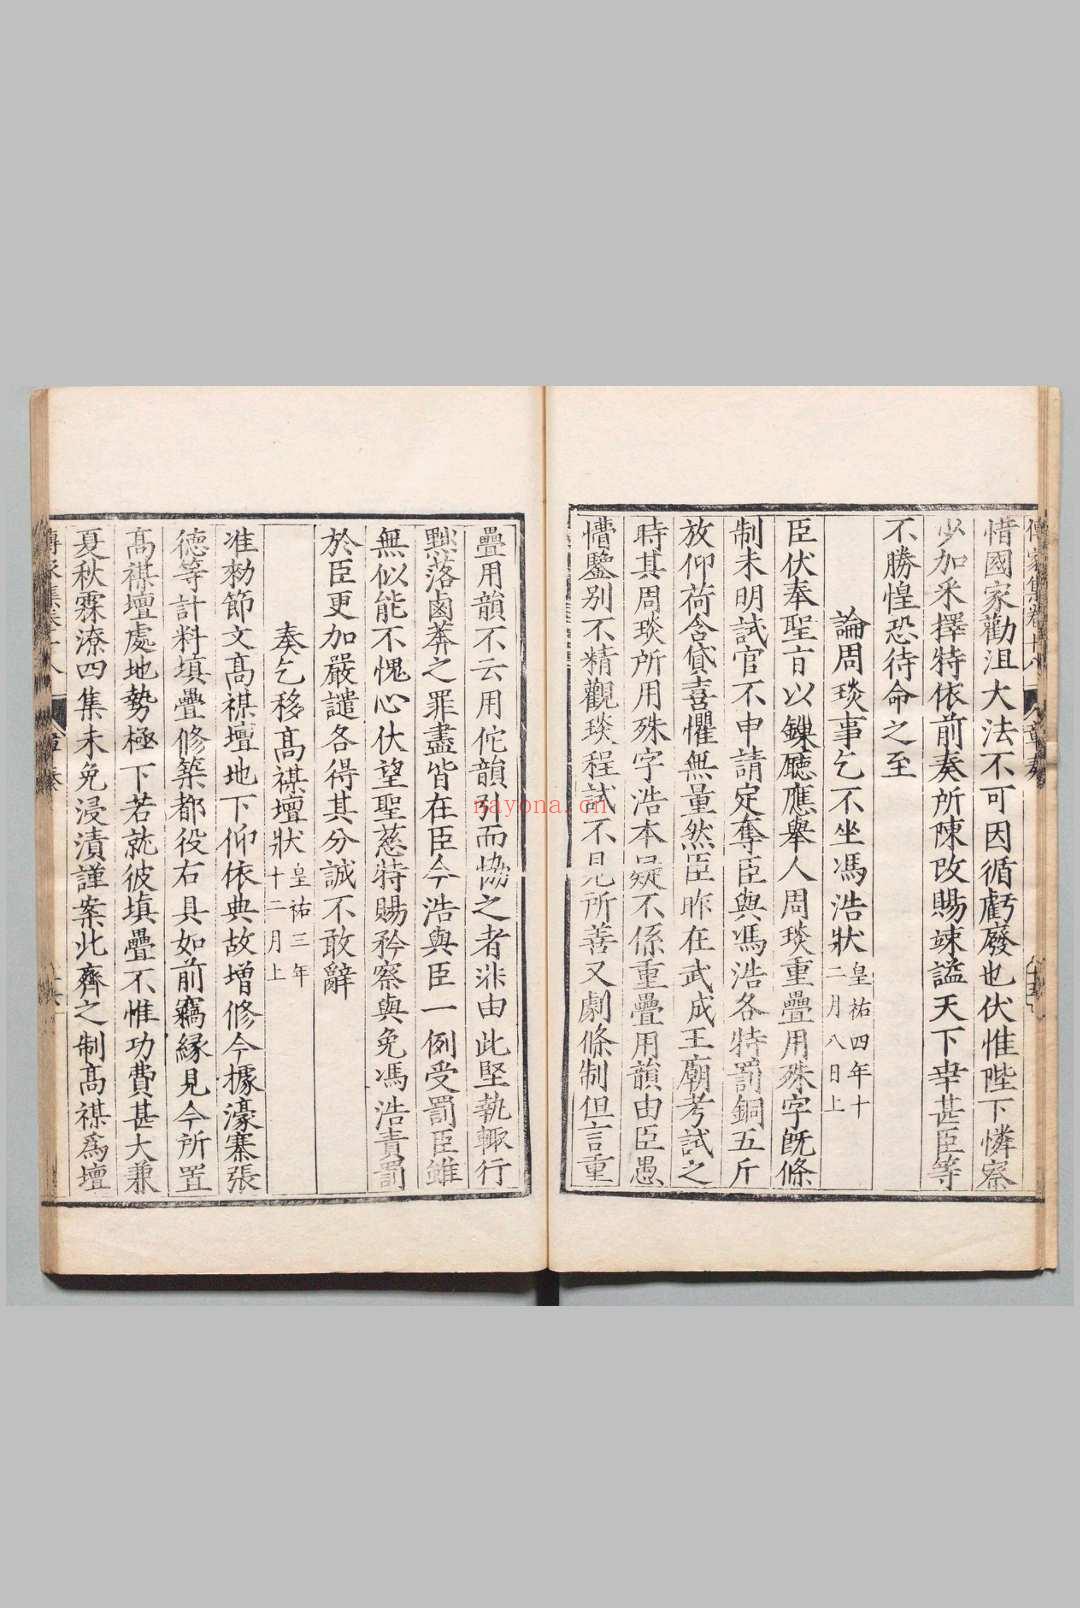 惜國家勸沮大法不可因循虧廢也伏惟陛下憐察
少加采擇特依前奏所陳改賜竦謚天下幸甚臣等
不勝惶恐待命之至
論周琰事乞不坐馮浩狀皇祐四年十二月八日上
臣伏奉聖㫖以鏁廳應舉人周琰重疊用殊字旣條
制未明試官不申請定奪臣與馮浩各特罰銅五斤
放仰荷含貸喜懼無量然臣昨在武成王廟考試之
時其周琰所用殊字浩本疑不係重疊用韻由臣愚
懵鑒别不精觀琰程試不見所善又劇條制但言重
疊用韻不云用佗韻引而恊之者非由此堅執輙行
黜落鹵莽之罪盡皆在臣今浩與臣一例受罰臣雖
無似能不愧心伏望聖慈特賜矜察與免馮浩責罰
於臣更加嚴譴各得其分誠不敢辭
奏乞移高禖壇狀皇祐三年十二月上
准勑節文高禖壇地下仰依典故增修今據濠寨張
德等計料填疊修築都役右具如前竊縁見今所置
高禖壇處地勢極下若就彼填疊不惟功費甚大兼
夏秋霖潦四集未免浸漬謹案北齊之制高禖爲壇
nayona.cn